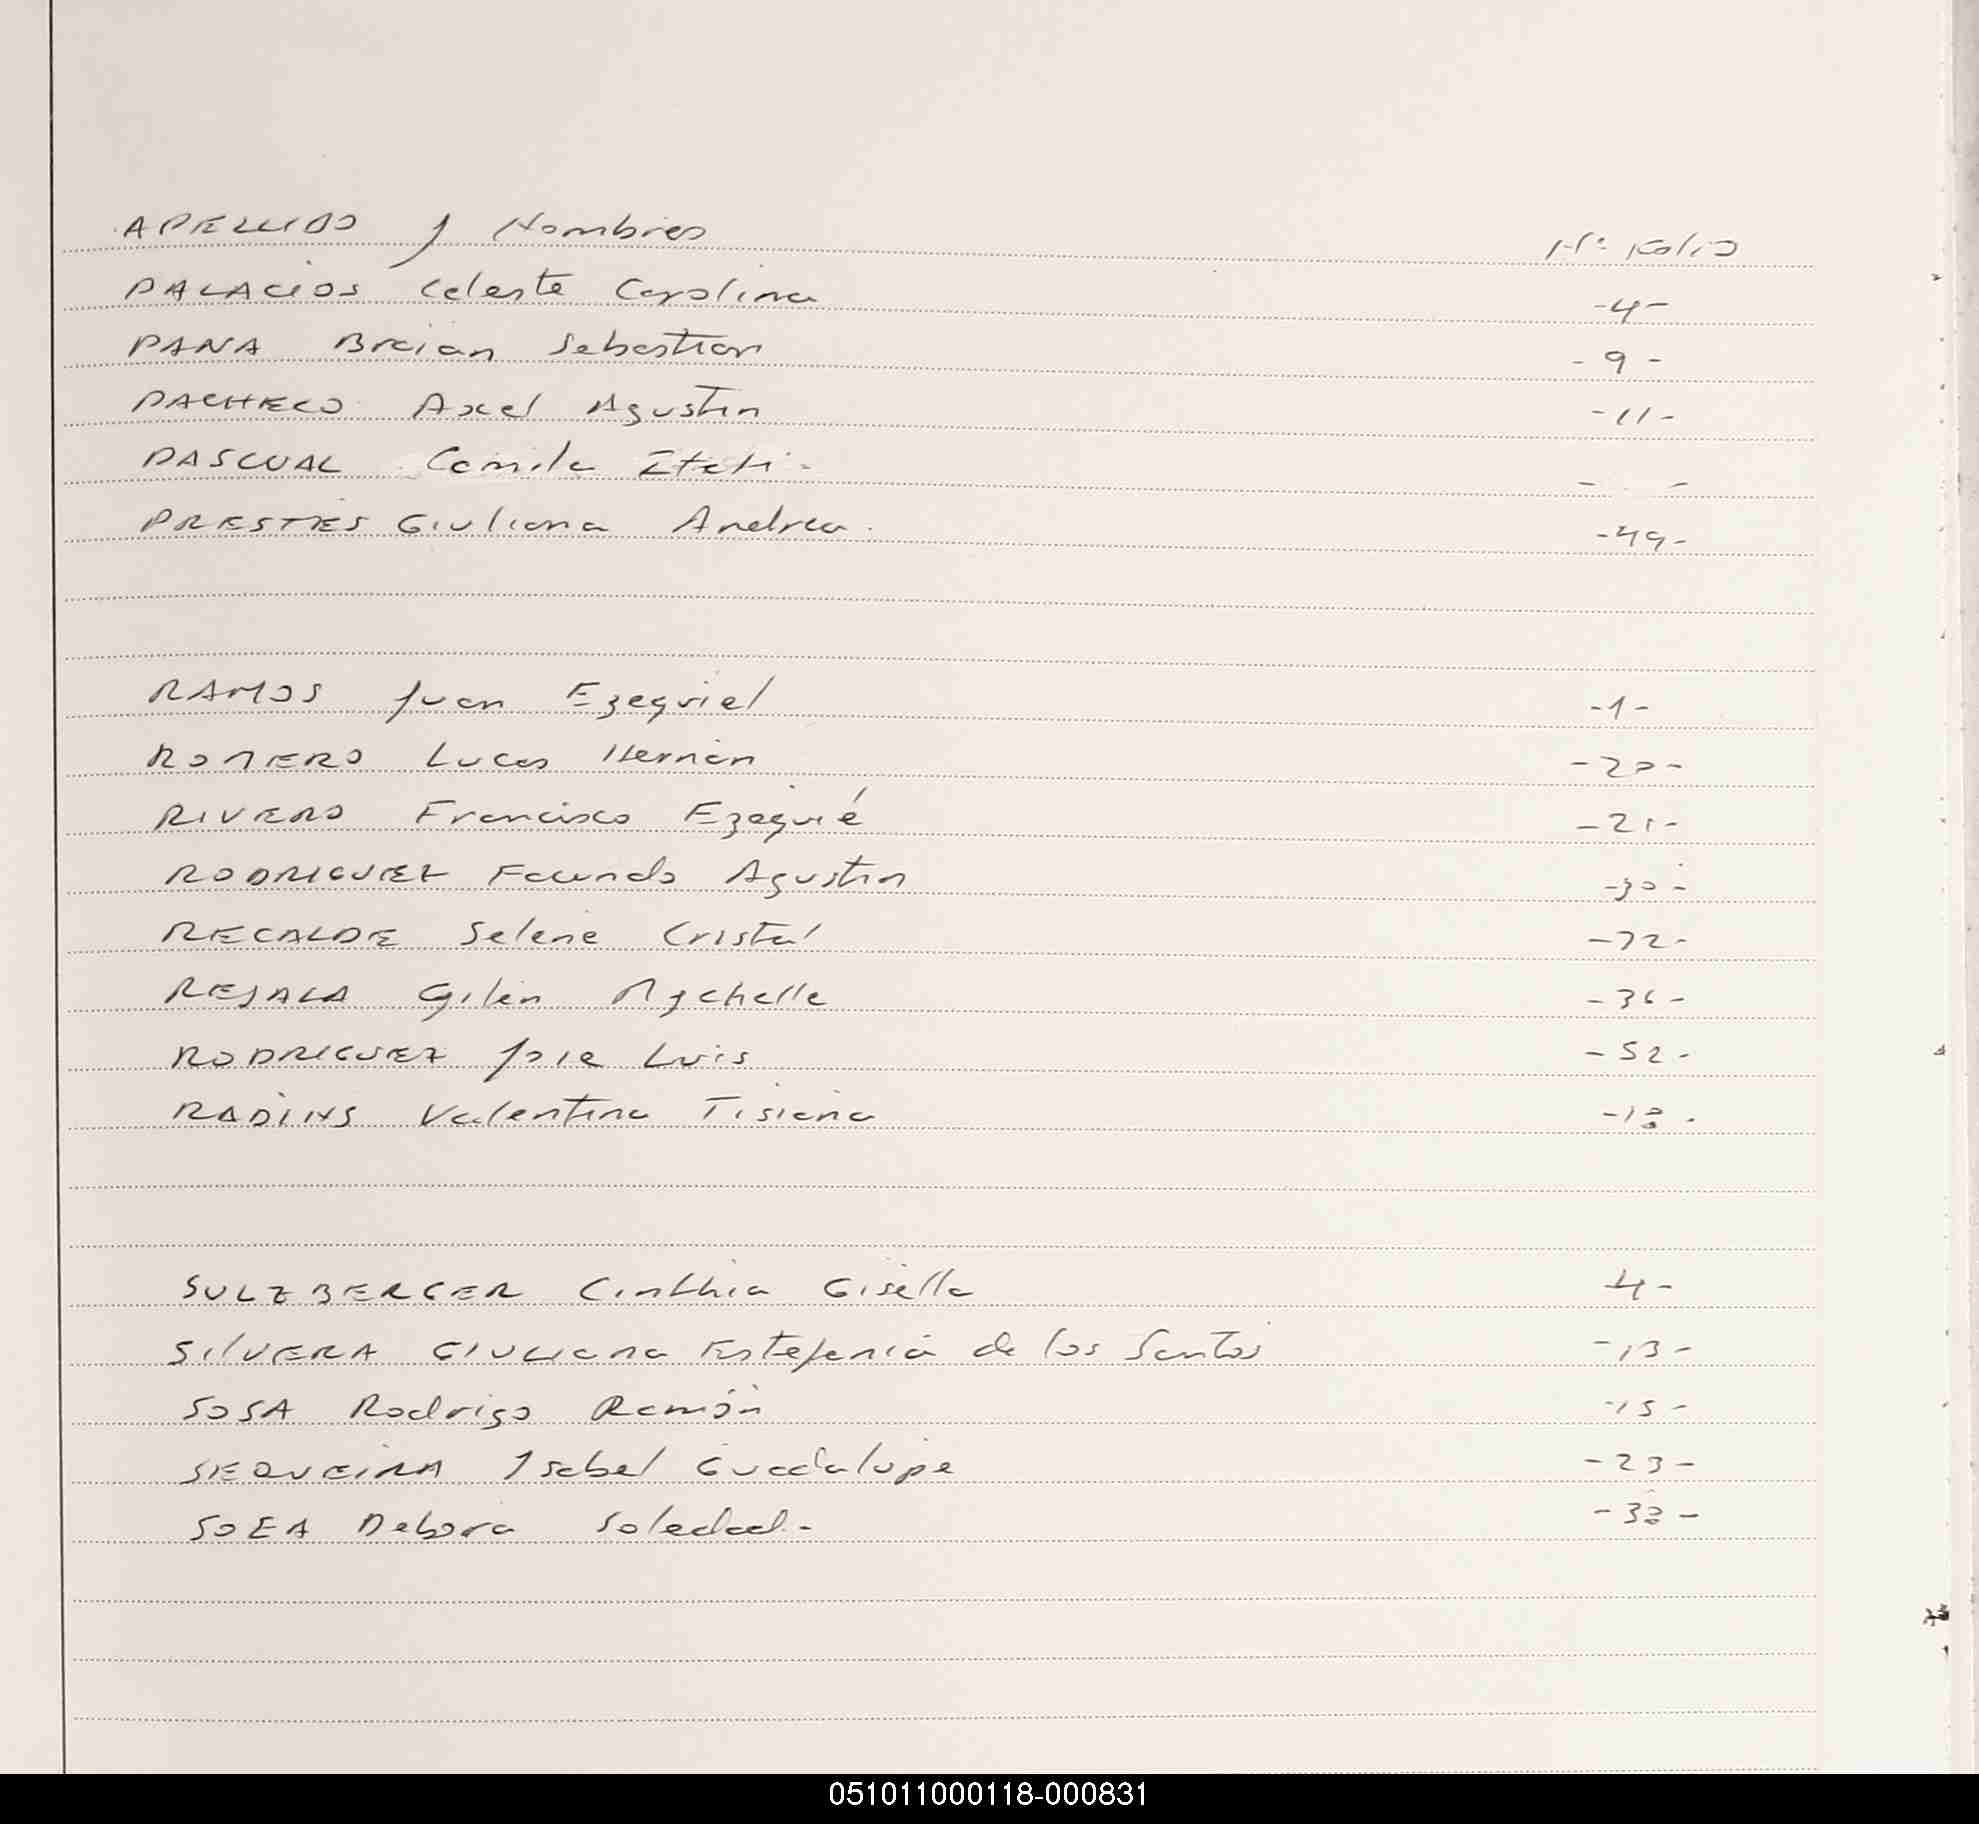 APELLIDO y Nombres Nº Folio
PALACIOS Celeste Carolina -4-
PANA Braian Sebastian -9-
PACHECO Axel Agustin -11-
PASCUAL Camila Itati - -
PRESTES Giuliana Andrea -49-
RAMOS Juan Ezequiel -1-
ROMERO Lucas Hernán -20-
RIVERO Francisco -21-
RODRIGUEZ Facundo Agustin -30-
RECALDE Selene Cristal -32-
REJALA -36-
RODRIGUEZ Jose Luis -52-
RADINS Valentina Tisiana
SULZBERGER Cinthia Gisella 4-
SILVERA GIULIana Estefanía de los Santos -13-
SOSA Rodrigo Ramón -15-
SEQUEIRA Isabel Guadalupe -23-
Debora Soledad.-
051011000118-000831